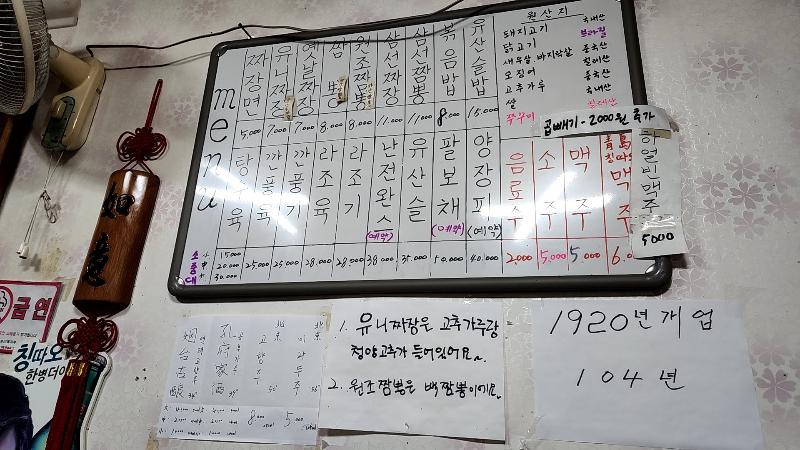 menu
짜장면 5,000
유니짜장 7,000
옛날짜장 7,000
짬뽕 8,000
원조짬뽕 8,000
삼선짜장 11,000
삼선짬뽕 11,000
볶음밥 8,000
유산슬밥 15,000
탕수육
소 15,000
中 20,000
대 30,000
깐풍육 25,000
깐풍기 25,000
라조육 28,000
라조기 28,000
난전완스 (예약) 38,000
유산슬 35,000
팔보채 (예약) 50,000
양장피 (예약) 40,000
원산지
돼지고기 국내산
닭고기 브라질
새우살, 바지락살 중국산
오징어
고추가루 중국산
쌀 국내산
쭈꾸미
곱빼기-2000원 추가
음료수 2,000
소주 5,000
맥주 5,000
青島
칭따오
맥주 6,000
하얼빈맥주
5000
如意
금연
칭따오
한병더
1. 유니짜장은 고추가루랑
청양고추가 들어있어요~
2. 원조짬뽕은 백짬뽕이에요.
1920년개업
104년